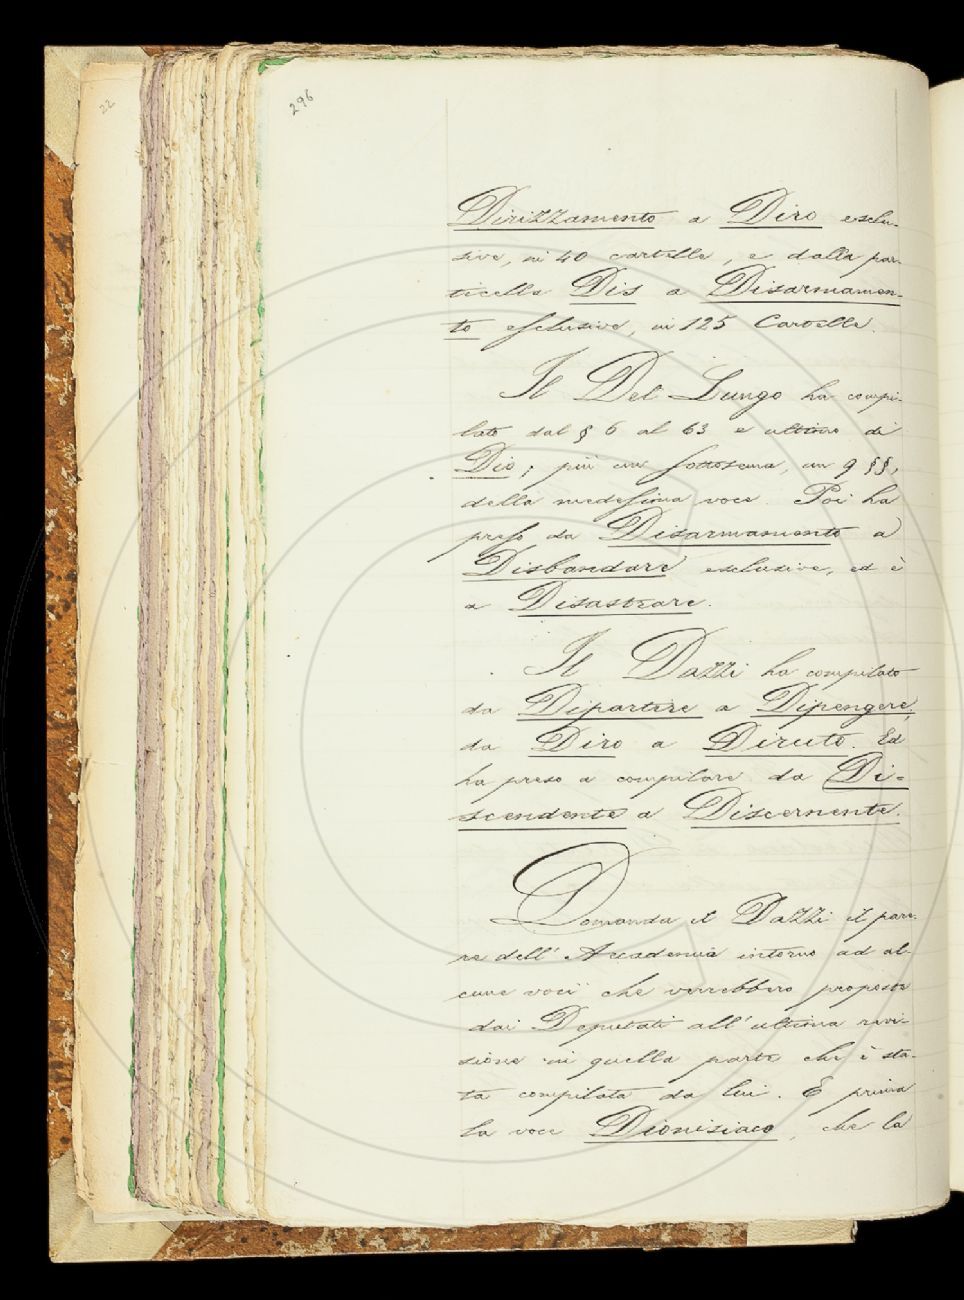 22
296
Dirizzamento a Diro esclu-
sive, in 40 cartelle, e dalla par-
ticella Dis a Disarmamen-
to esclusive, in 125 Cartelle.
Il Del Lungo ha compi-
lato dal § 6 al 63 e ultimo di
Dio; più un sottotema, in 9 §§,
della medesima voce. Poi ha
preso da Disarmamento a
Disbandare esclusive, ed è
a Disastrare.
Il Dazzi ha compilato
da Dipartire a Dipengere,
da Diro a Diruto. Ed
ha preso a compilare da Di-
scendente a Discernente.
Domanda il Dazzi il pare-
re dell' Accademia intorno ad al-
cune voci che verrebbero proposte
dai Deputati all' ultima revi-
sione in quella parte che è sta-
ta compilata da lui. E prima
la voce Dionisiaco, che la